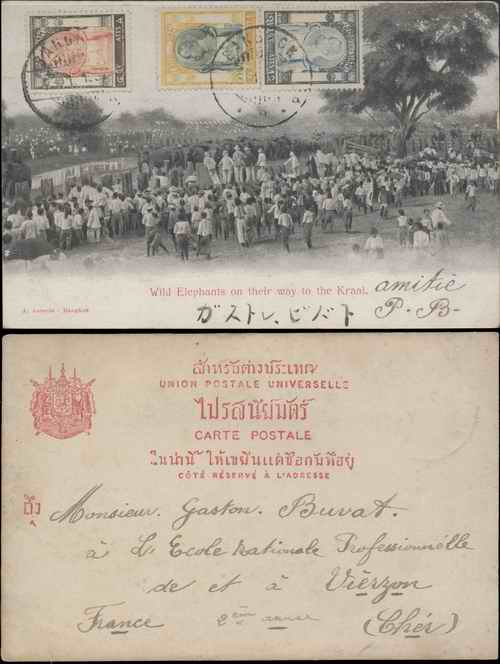 Wild Elephants on their way to the Kraal.
amitié
P. B-
ガストレ、ビバト
J. Antonio - Bangkok
สำหรับต่างประเทศ
UNION POSTALE UNIVERSELLE
ไปรสนียบัตร์
CARTE POSTALE
ในด้านนี้ ให้เขียนแต่ชื่อกับที่อยู่
CÔTÉ RÉSERVÉ À L'ADRESSE
ถึง
Monsieur. Gaston. Buvat.
à L'Ecole Nationale Professionnelle
de et à Vierzon
France 2ème année (Cher)